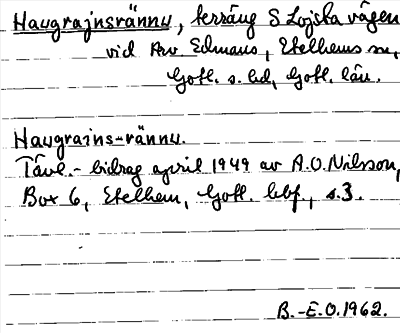 Haugrajnsrännu, terräng S Lojsta vägen
vid Arv. Edmans, Etelhems sn,
Gotl. s. hd, Gotl. län.
Haugrains-rännu.
Tävl.- bidrag april 1949 av A.O. Nilsson,
Box 6, Etelhem, Gotl. hbf., s.3.
B.-E.O.1962.